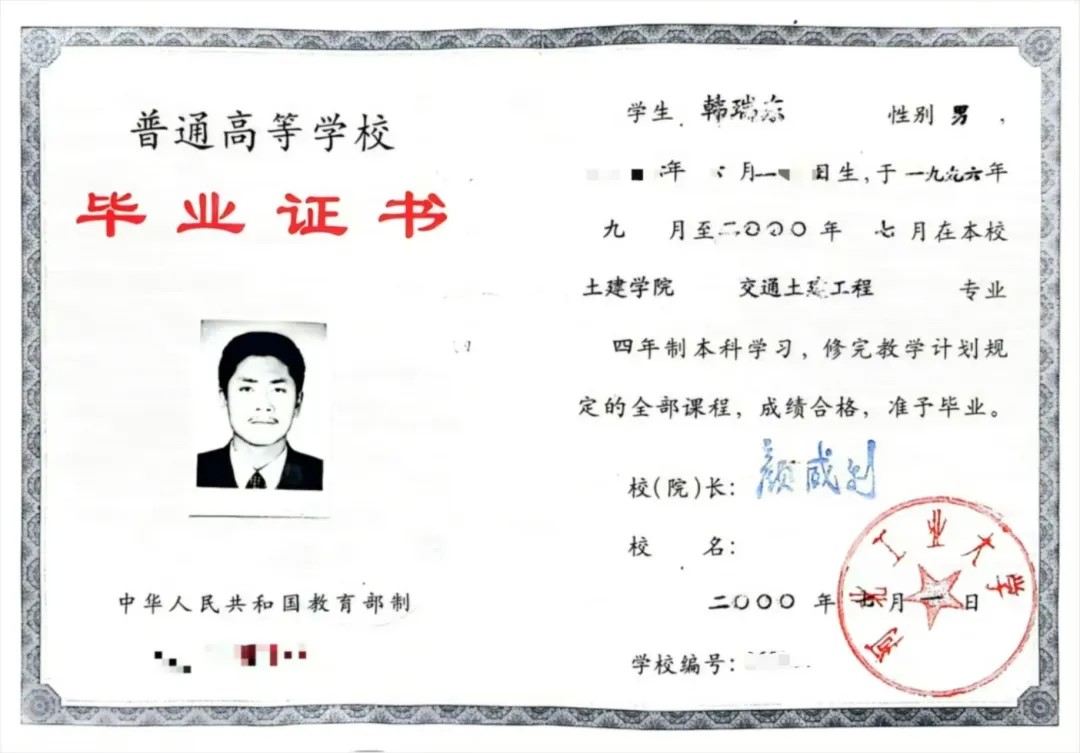 普通高等学校
毕业证书
中华人民共和国教育部制
学生 韩瑞东 性别 男，
年 月 日生，于一九九六年
九 月至二〇〇〇年 七月在本校
土建学院 交通土建工程 专业
四年制本科学习，修完教学计划规
定的全部课程，成绩合格，准予毕业。
校(院)长：颜威利
校 名：
河北工业大学
二〇〇〇 年 七月 一日
学校编号：